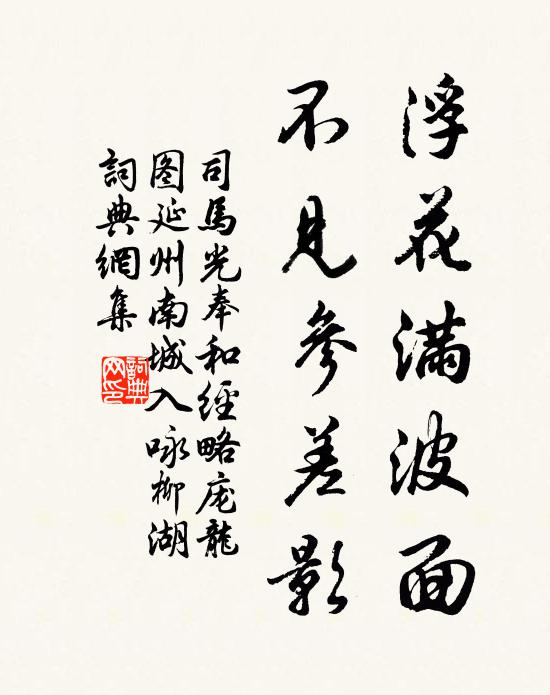 浮花满波面
不見參差影
司馬光奉和經略庞龍
图延州南城入咏柳湖
詞典網集
詞典
网印